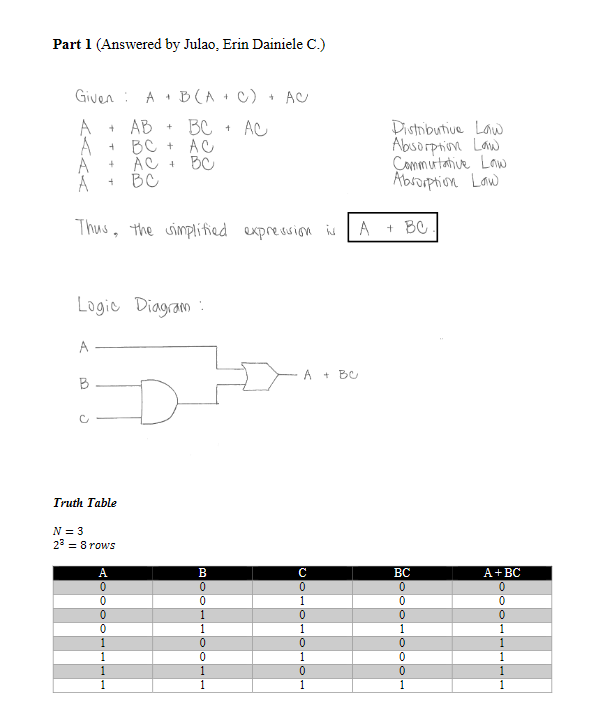 Part 1 (Answered by Julao, Erin Dainiele C.)
Given : A + B(A + C) + AC
A + AB + BC + AC Distributive Law
A + BC + AC Absorption Law
A + AC + BC Commutative Law
A + BC Absorption Law
Thus, the simplified expression is A + BC.
Logic Diagram :
A
B
C
A + BC
Truth Table
N = 3
2³ = 8 rows
A B C BC A + BC
0 0 0 0 0
0 0 1 0 0
0 1 0 0 0
0 1 1 1 1
1 0 0 0 1
1 0 1 0 1
1 1 0 0 1
1 1 1 1 1